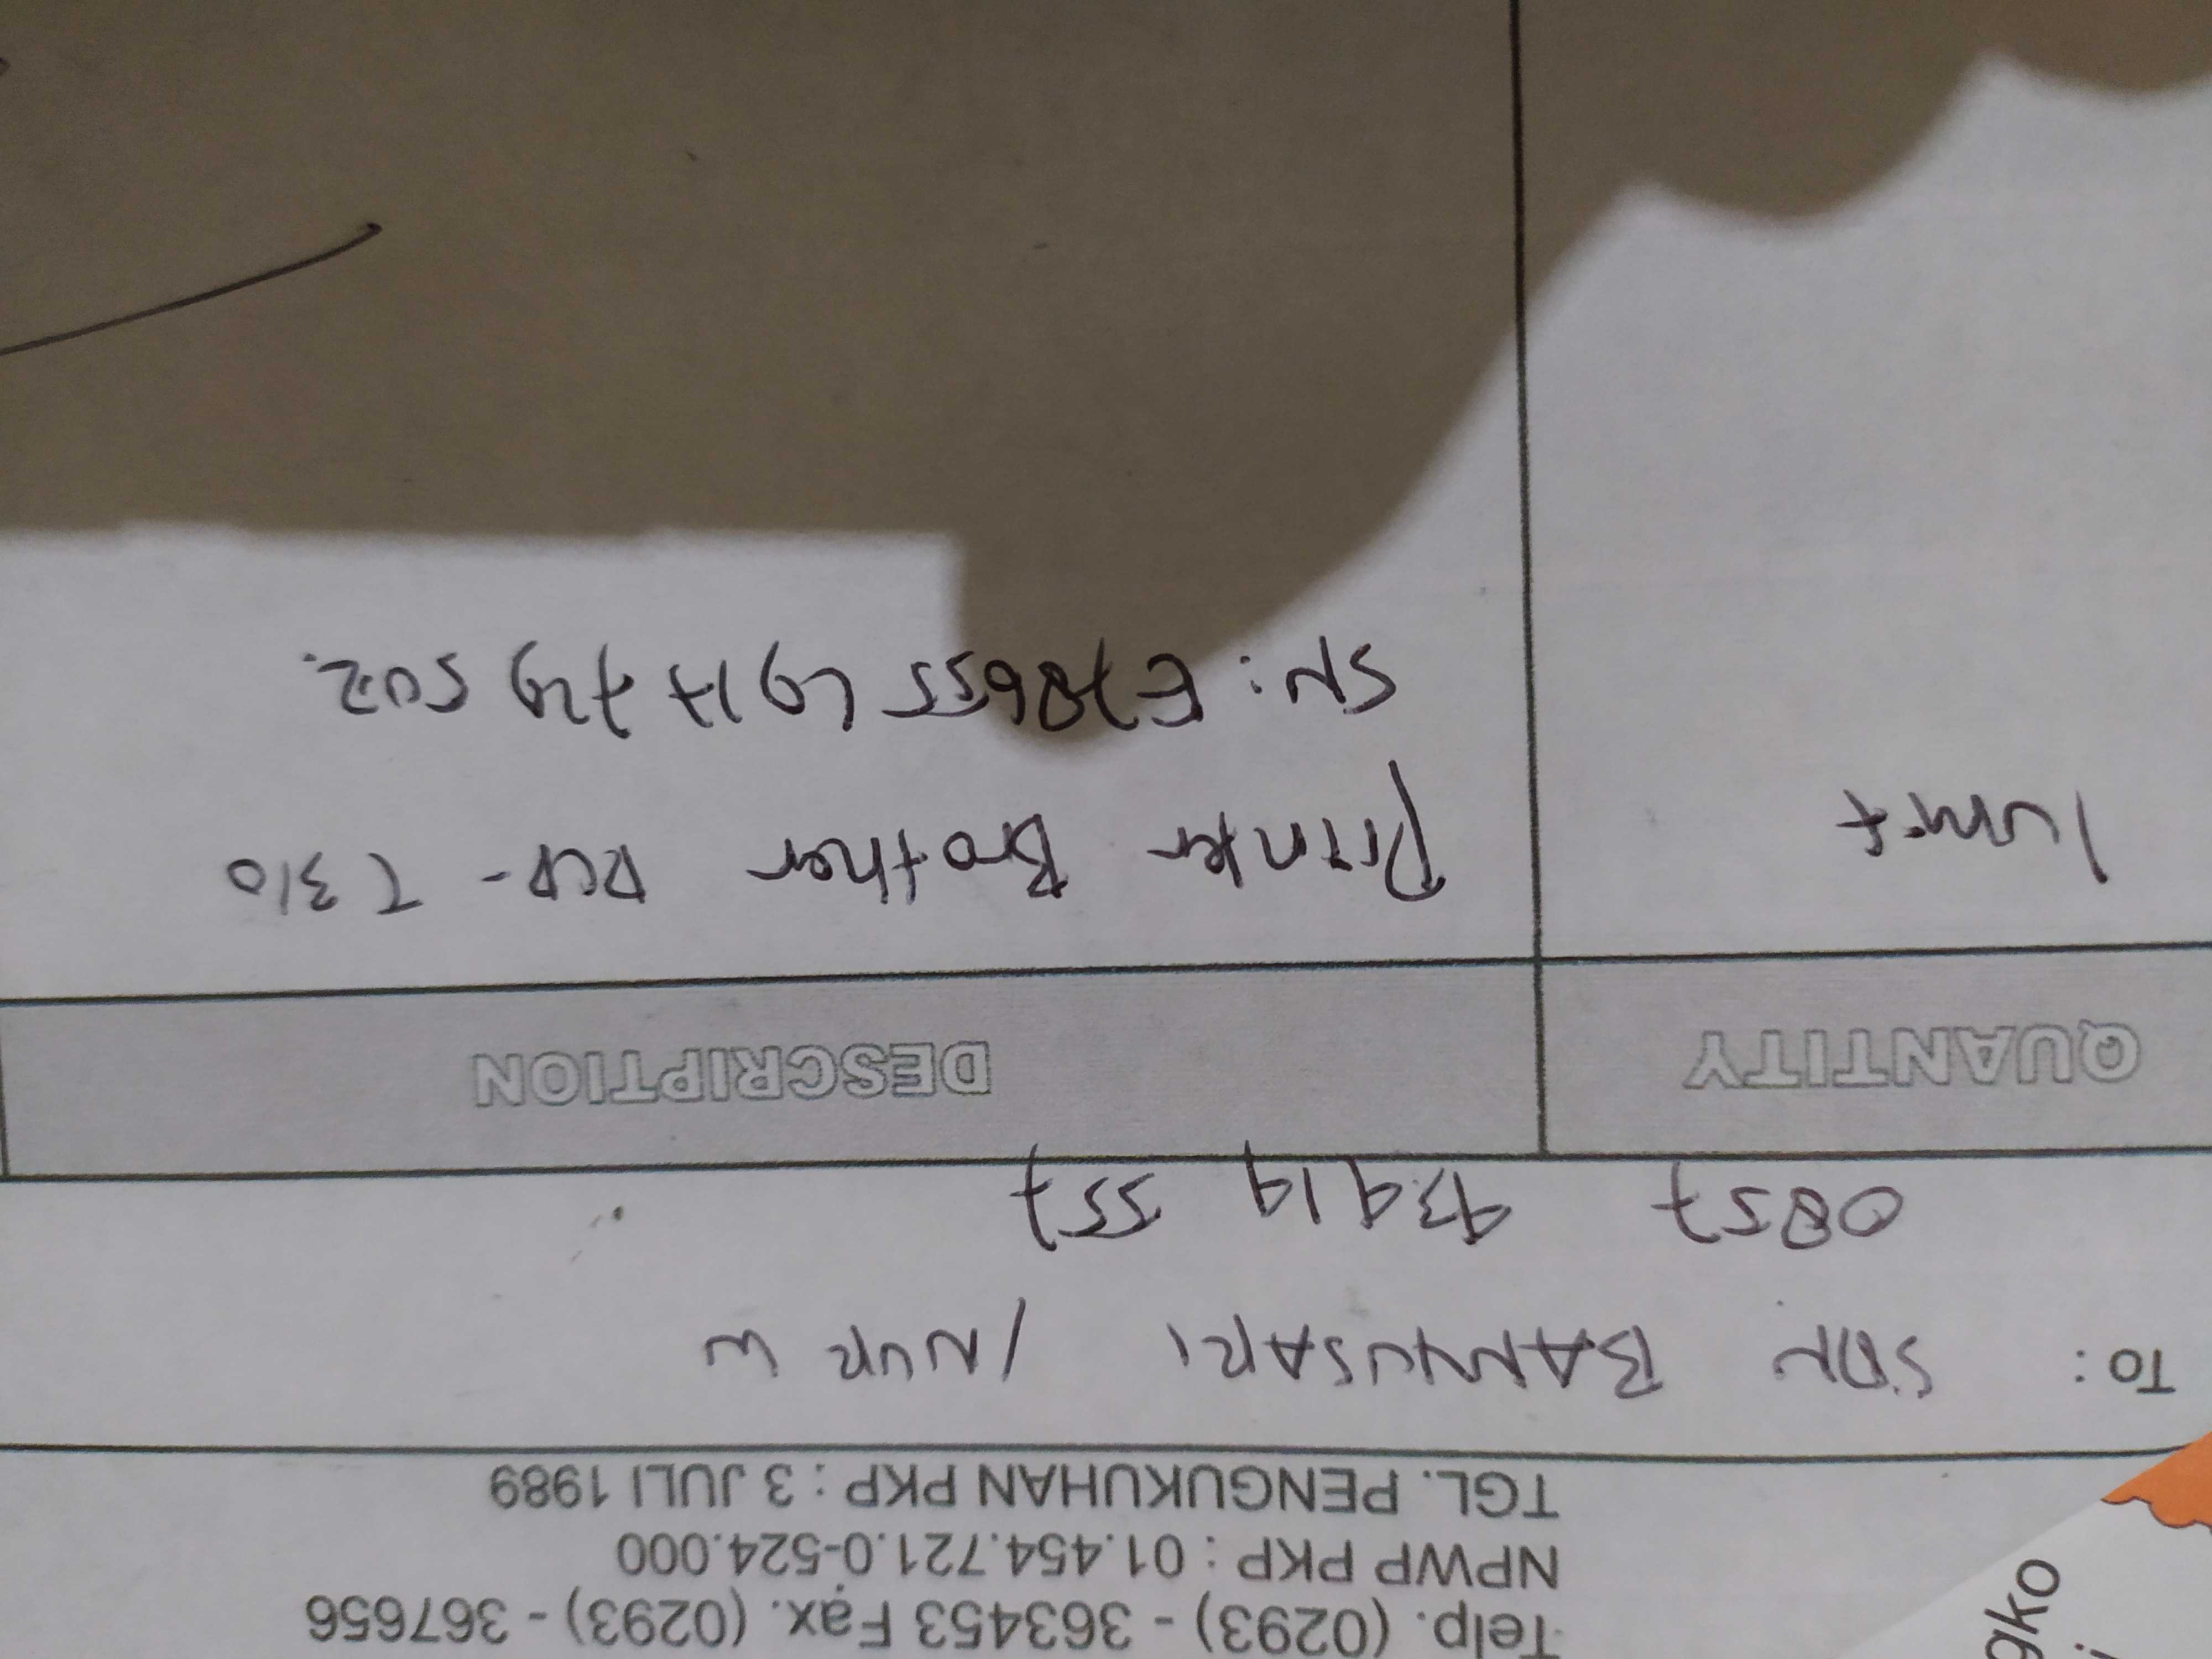 Telp. (0293) - 363453 Fax. (0293) - 367656
NPWP PKP : 01.454.721.0-524.000
TGL. PENGUKUHAN PKP : 3 JULI 1989
gko
TO : SDN BANYUSARI / NUR W
0857 43919 557
QUANTITY DESCRIPTION
1 unit Printer Brother DCP - T310
SN : E78655